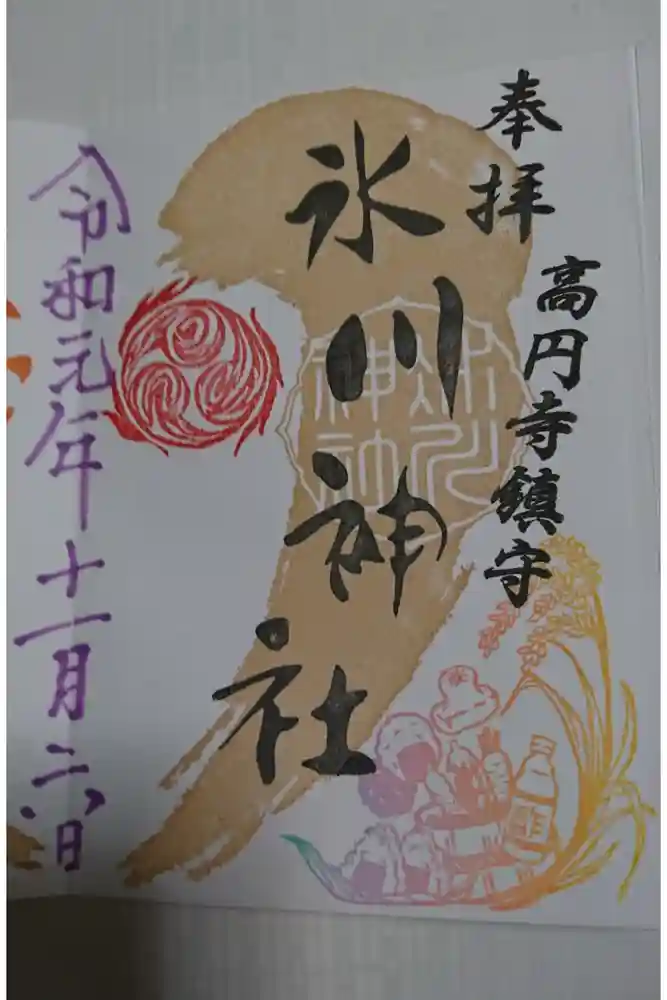 奉拝
高円寺鎮守
氷川神社
氷川
神社
令和元年十一月二八日